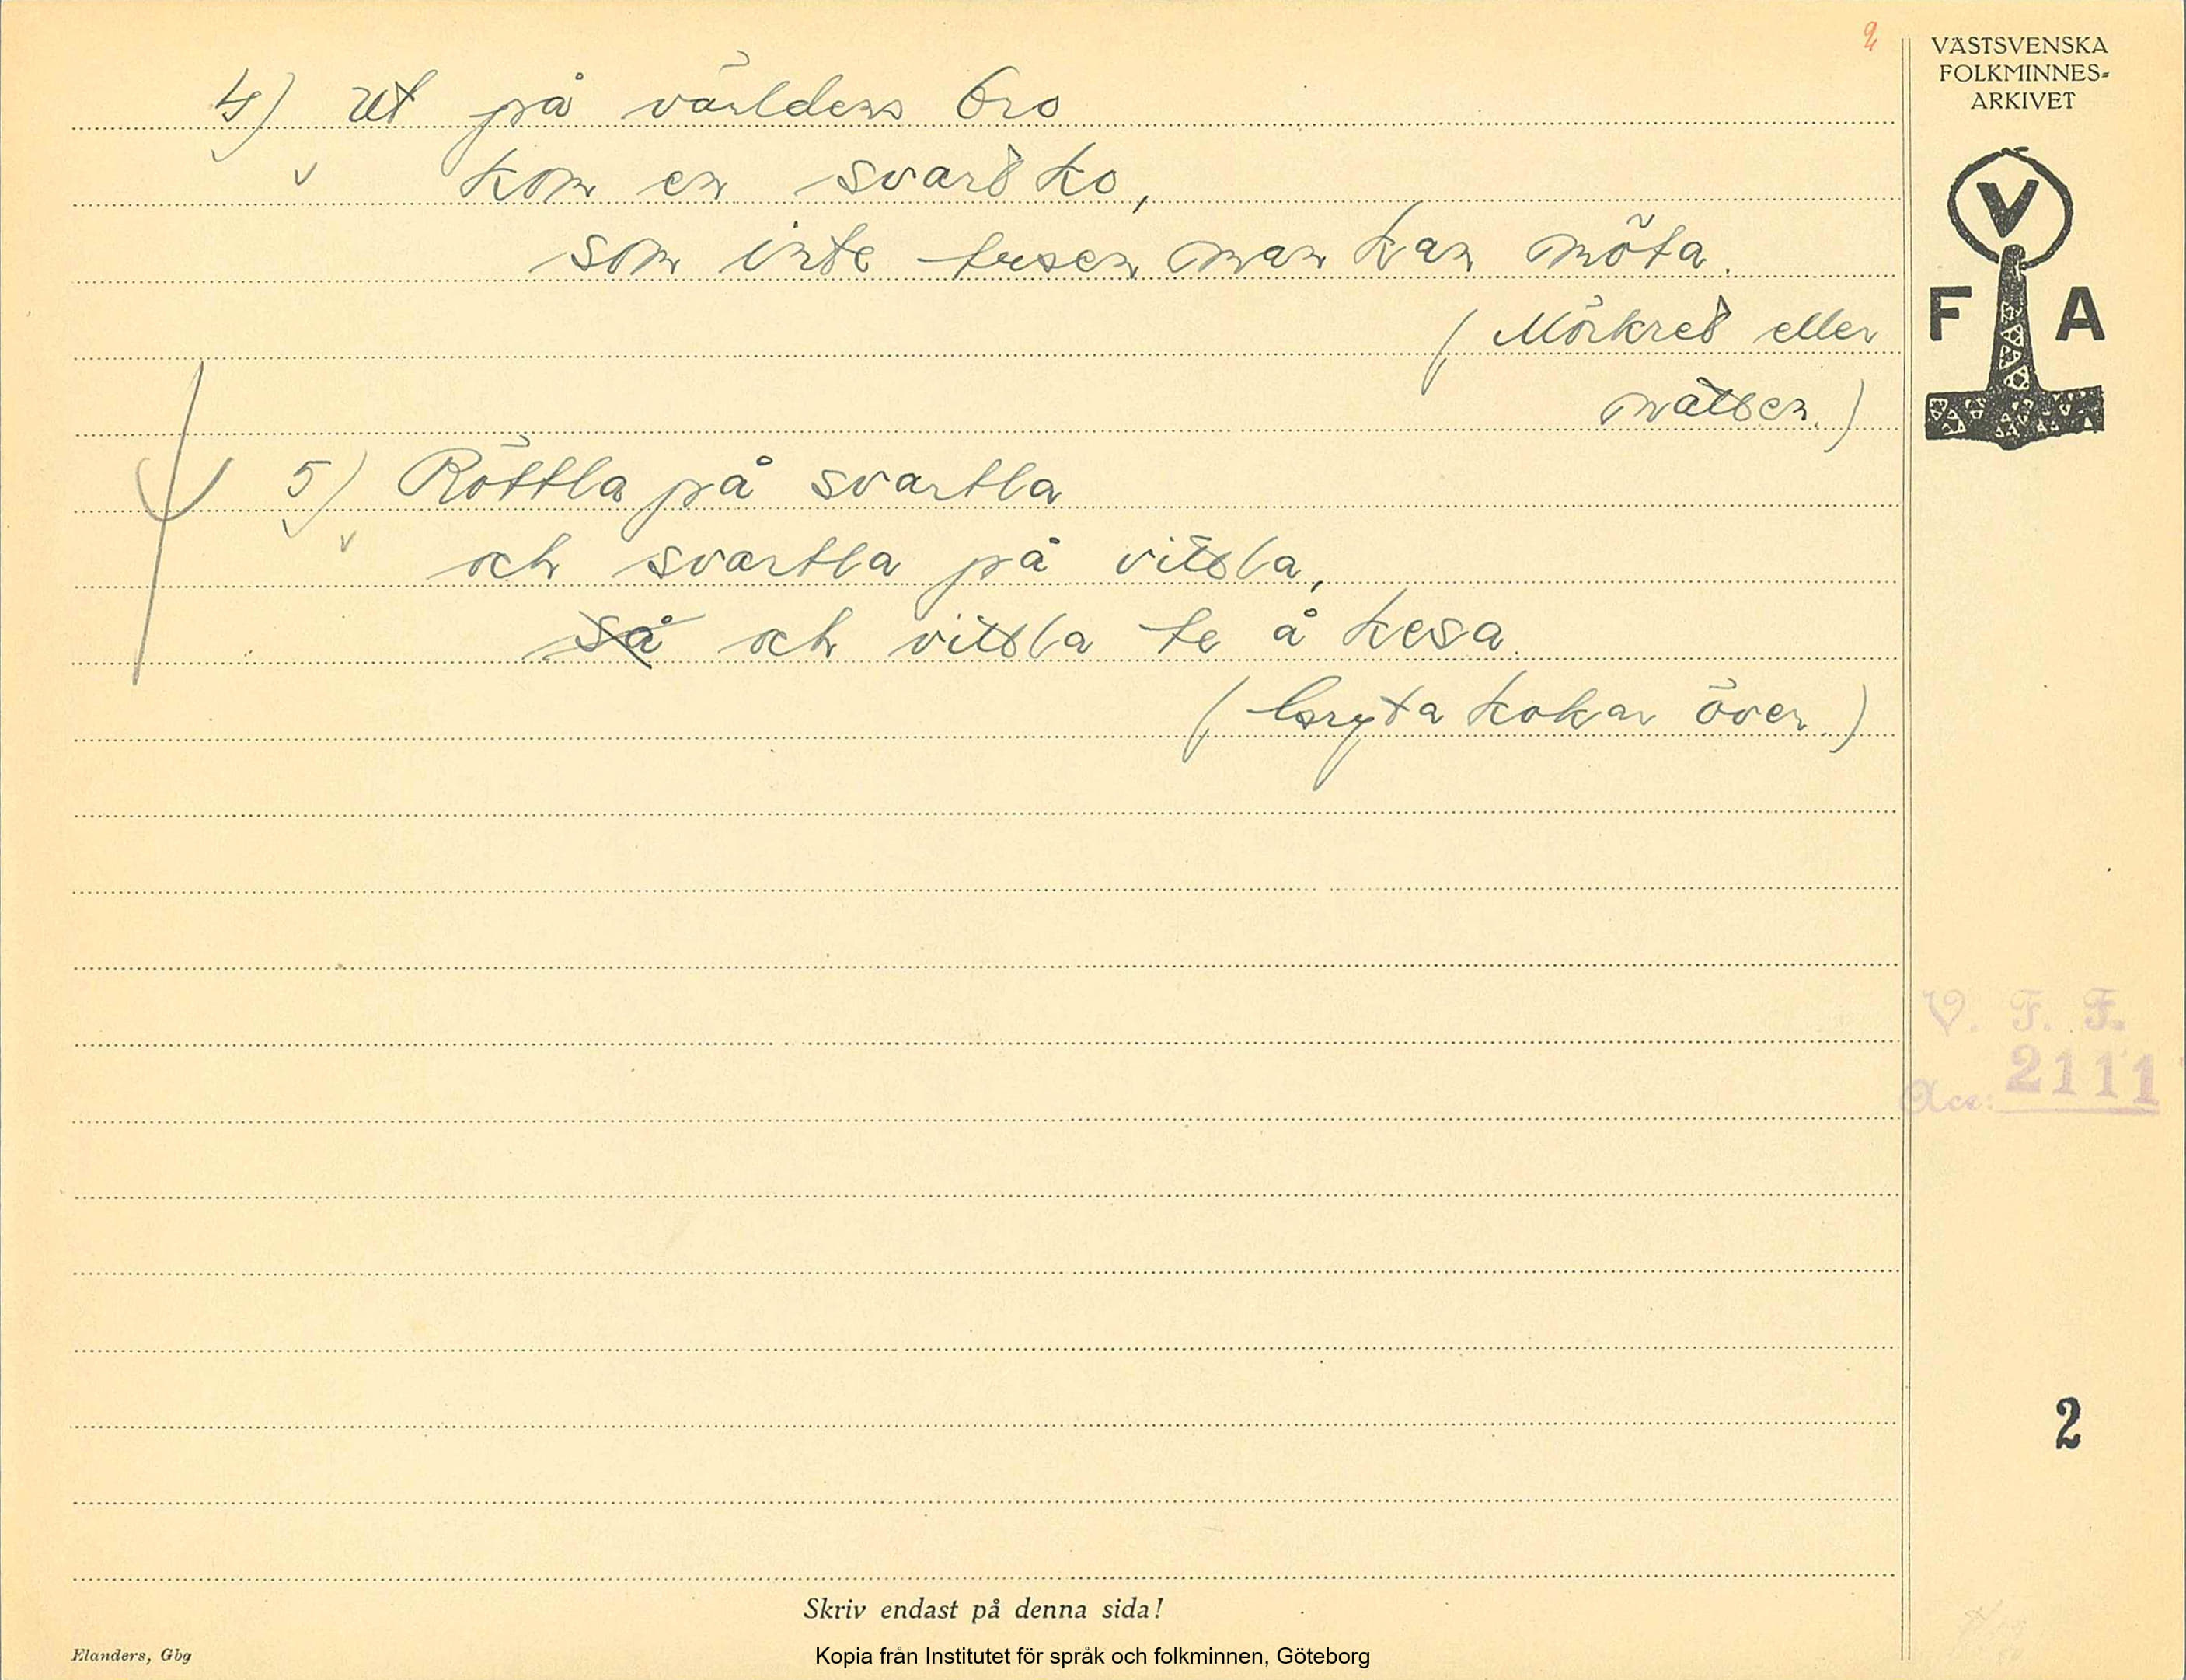 2
4) Ut på världens bro
kom en svart ko,
som inte tusen man kan möta.
(Mörkret eller
natten.)
5) Röttla på svartla
och svartla på vittla,
så och vittla te å kesa.
(Gryta kokar över.)
VÄSTSVENSKA
FOLKMINNES-
ARKIVET
V
F A
V. F. F.
Acc: 2111
2
Skriv endast på denna sida!
Elanders, Gbg
Kopia från Institutet för språk och folkminnen, Göteborg